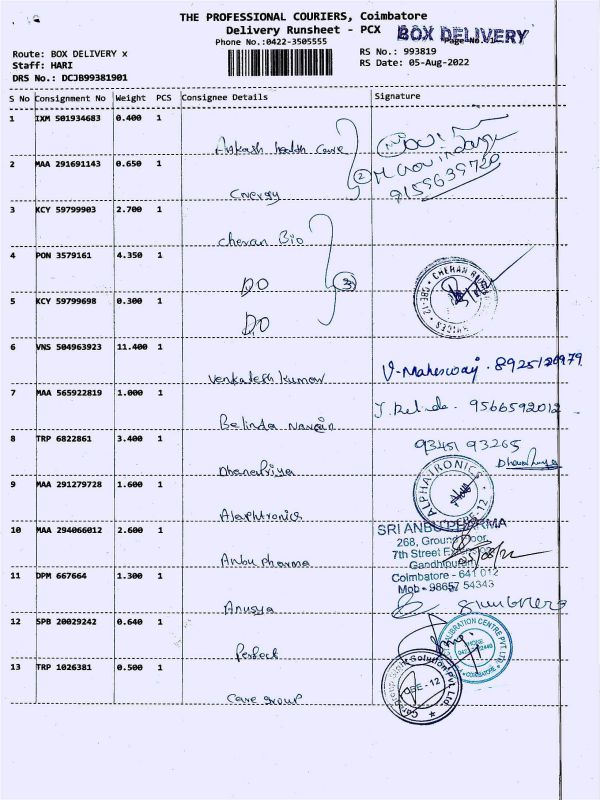 THE PROFESSIONAL COURIERS, Coimbatore
Delivery Runsheet - PCX
BOX DELIVERY
Phone No.:0422-3505555
Route: BOX DELIVERY x
RS No.: 993819
Staff: HARI
RS Date: 05-Aug-2022
DRS No.: DCJB99381901
S No Consignment No Weight PCS Consignee Details Signature
1 IXM 501934683 0.400 1
health care
9159639720
2 MAA 291691143 0.650 1
2
Energy
3 KCY 59799903 2.700 1
Cheran Bio
4 PON 3579161 4.350 1
DO
3
5 KCY 59799698 0.300 1
DO
6 VNS 504963923 11.400 1
Venkatesh Kumar
7 MAA 565922819 1.000 1
9566592012
Belinda
8 TRP 6822861 3.400 1
93451 93265
Dhanapriya
9 MAA 291279728 1.600 1
ALPHATRONICS
Alaphtronics
10 MAA 294066012 2.600 1
SRI ANBU PHARMA
268, Ground Floor,
7th Street
Gandhipuram
Anbu pharma
11 DPM 667664 1.300 1
Coimbatore - 641 012
Mob - 98657 54343
Anusya
12 SPB 20029242 0.640 1
Perfect
13 TRP 1026381 0.500 1
Care group